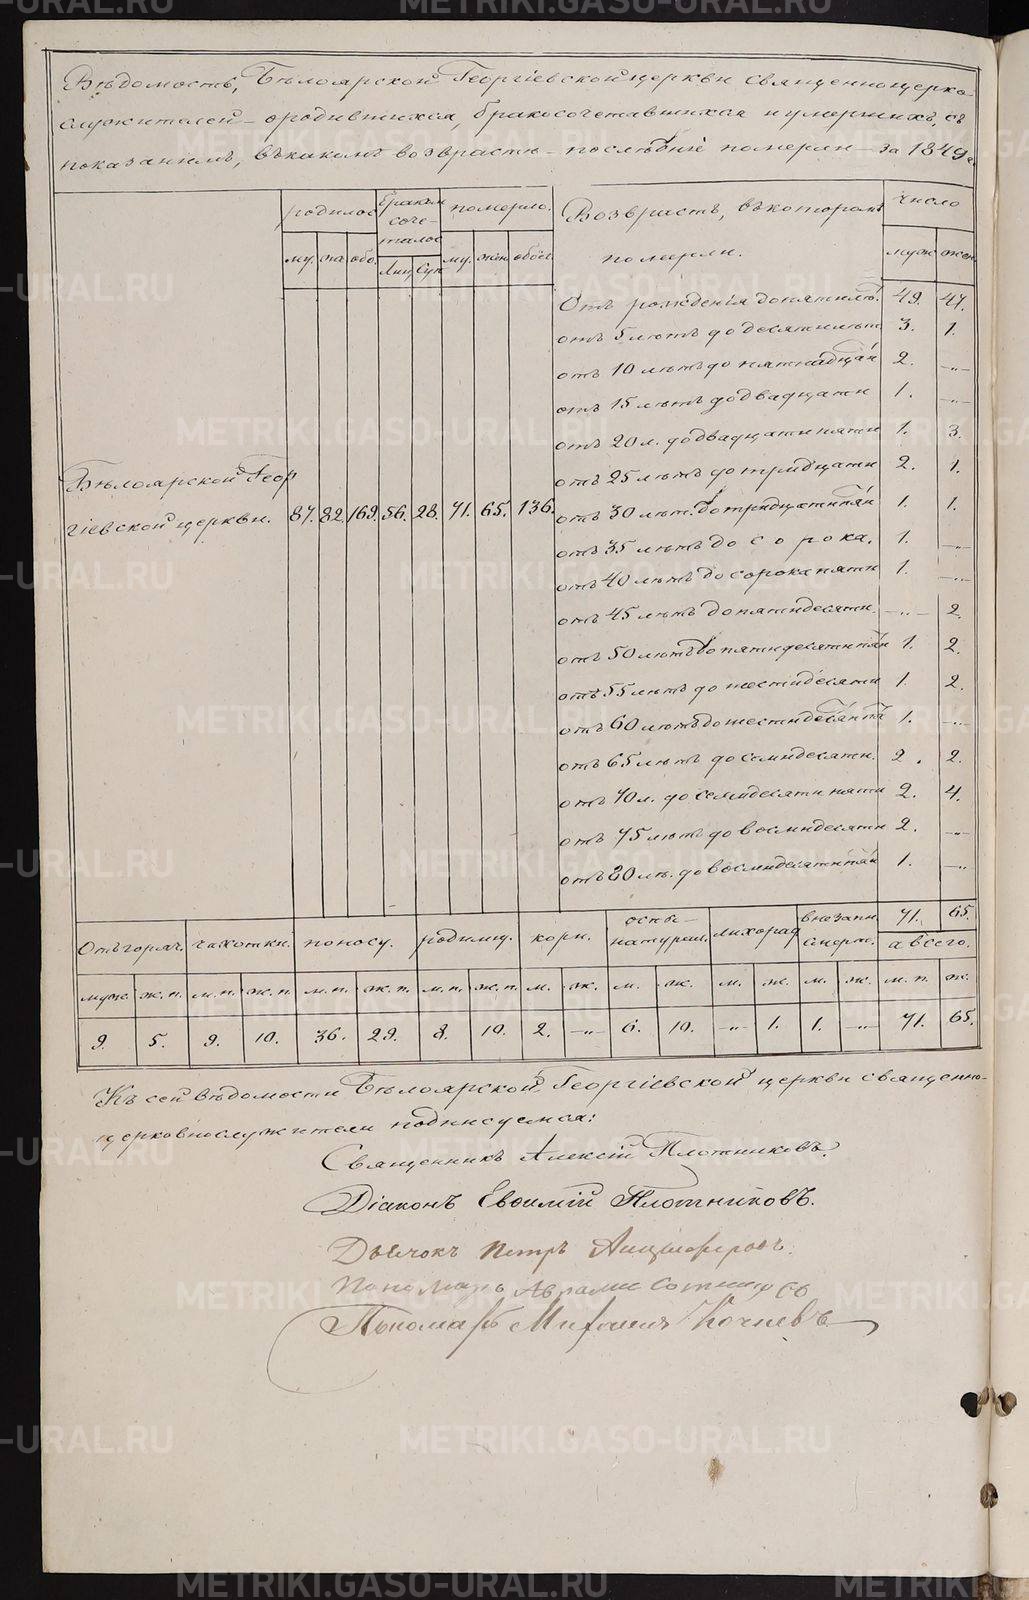 Вѣдомость, Бѣлоярской Георгіевской церкви священноцерко-
служителей – ородившихся, бракосочетавшихся и умершихъ, съ
показаніемъ, въ какомъ возврастѣ – послѣдніе померли – за 1849 г.
родилос бракомъ сочеталос померло. Возврастъ, въ которомъ померли. число
му. же. обо. Лиц. Суп. му. жен. обоег. муж. жен.
Отъ рожденія до пяти лѣ. 49. 47.
отъ 5 лѣтъ до десяти лѣтъ 3. 1.
отъ 10 лѣтъ до пятнадцати 2. –„–
отъ 15 лѣтъ до двадцати 1. –„–
отъ 20 л. до двадцати пяти 1. 3.
отъ 25 лѣтъ до тридцати 2. 1.
Бѣлоярской Геор
гіевской церкви. 87. 82. 169. 56. 28. 71. 65. 136.
отъ 30 лѣт. до тридцати пяти 1. 1.
отъ 35 лѣтъ до сорока. 1. –„–
отъ 40 лѣтъ до сорока пяти 1. –„–
отъ 45 лѣтъ до пятидесяти. –„– 2.
отъ 50 лѣтъ до пятидесяти пяти 1. 2.
отъ 55 лѣтъ до шестидесяти 1. 2.
отъ 60 лѣтъ до шестидесяти пя 1. –„–
отъ 65 лѣтъ до семидесяти. 2. 2.
отъ 70 л. до семидесяти пяти 2. 4.
отъ 75 лѣтъ до восмидесяти 2. –„–
отъ 80 лѣ. до восмидесяти пяти 1. –„–
71. 65.
Отъ горяч. чахотки. поносу. родимцу. кори. оспы – натурал. лихорад. внезапн. смерт. а всего.
муж. ж. п. м. п. ж. п. м. п. ж. п. м. п. ж. п. м. ж. м. ж. м. ж. м. ж. м. п. ж.
9. 5. 9. 10. 36. 29. 8. 10. 2. –„– 6. 10. –„– 1. 1. –„– 71. 65.
Къ сей вѣдомости Бѣлоярской Георгіевской церкви священно-
церковнослужители подписуемся:
Священникъ Алексій Плотниковъ.
Діаконъ Евѳимій Плотниковъ.
Дьячокъ Петръ Анциферовъ.
Пономарь
Пономарь Кочневъ
METRIKI.GASO-URAL.RU